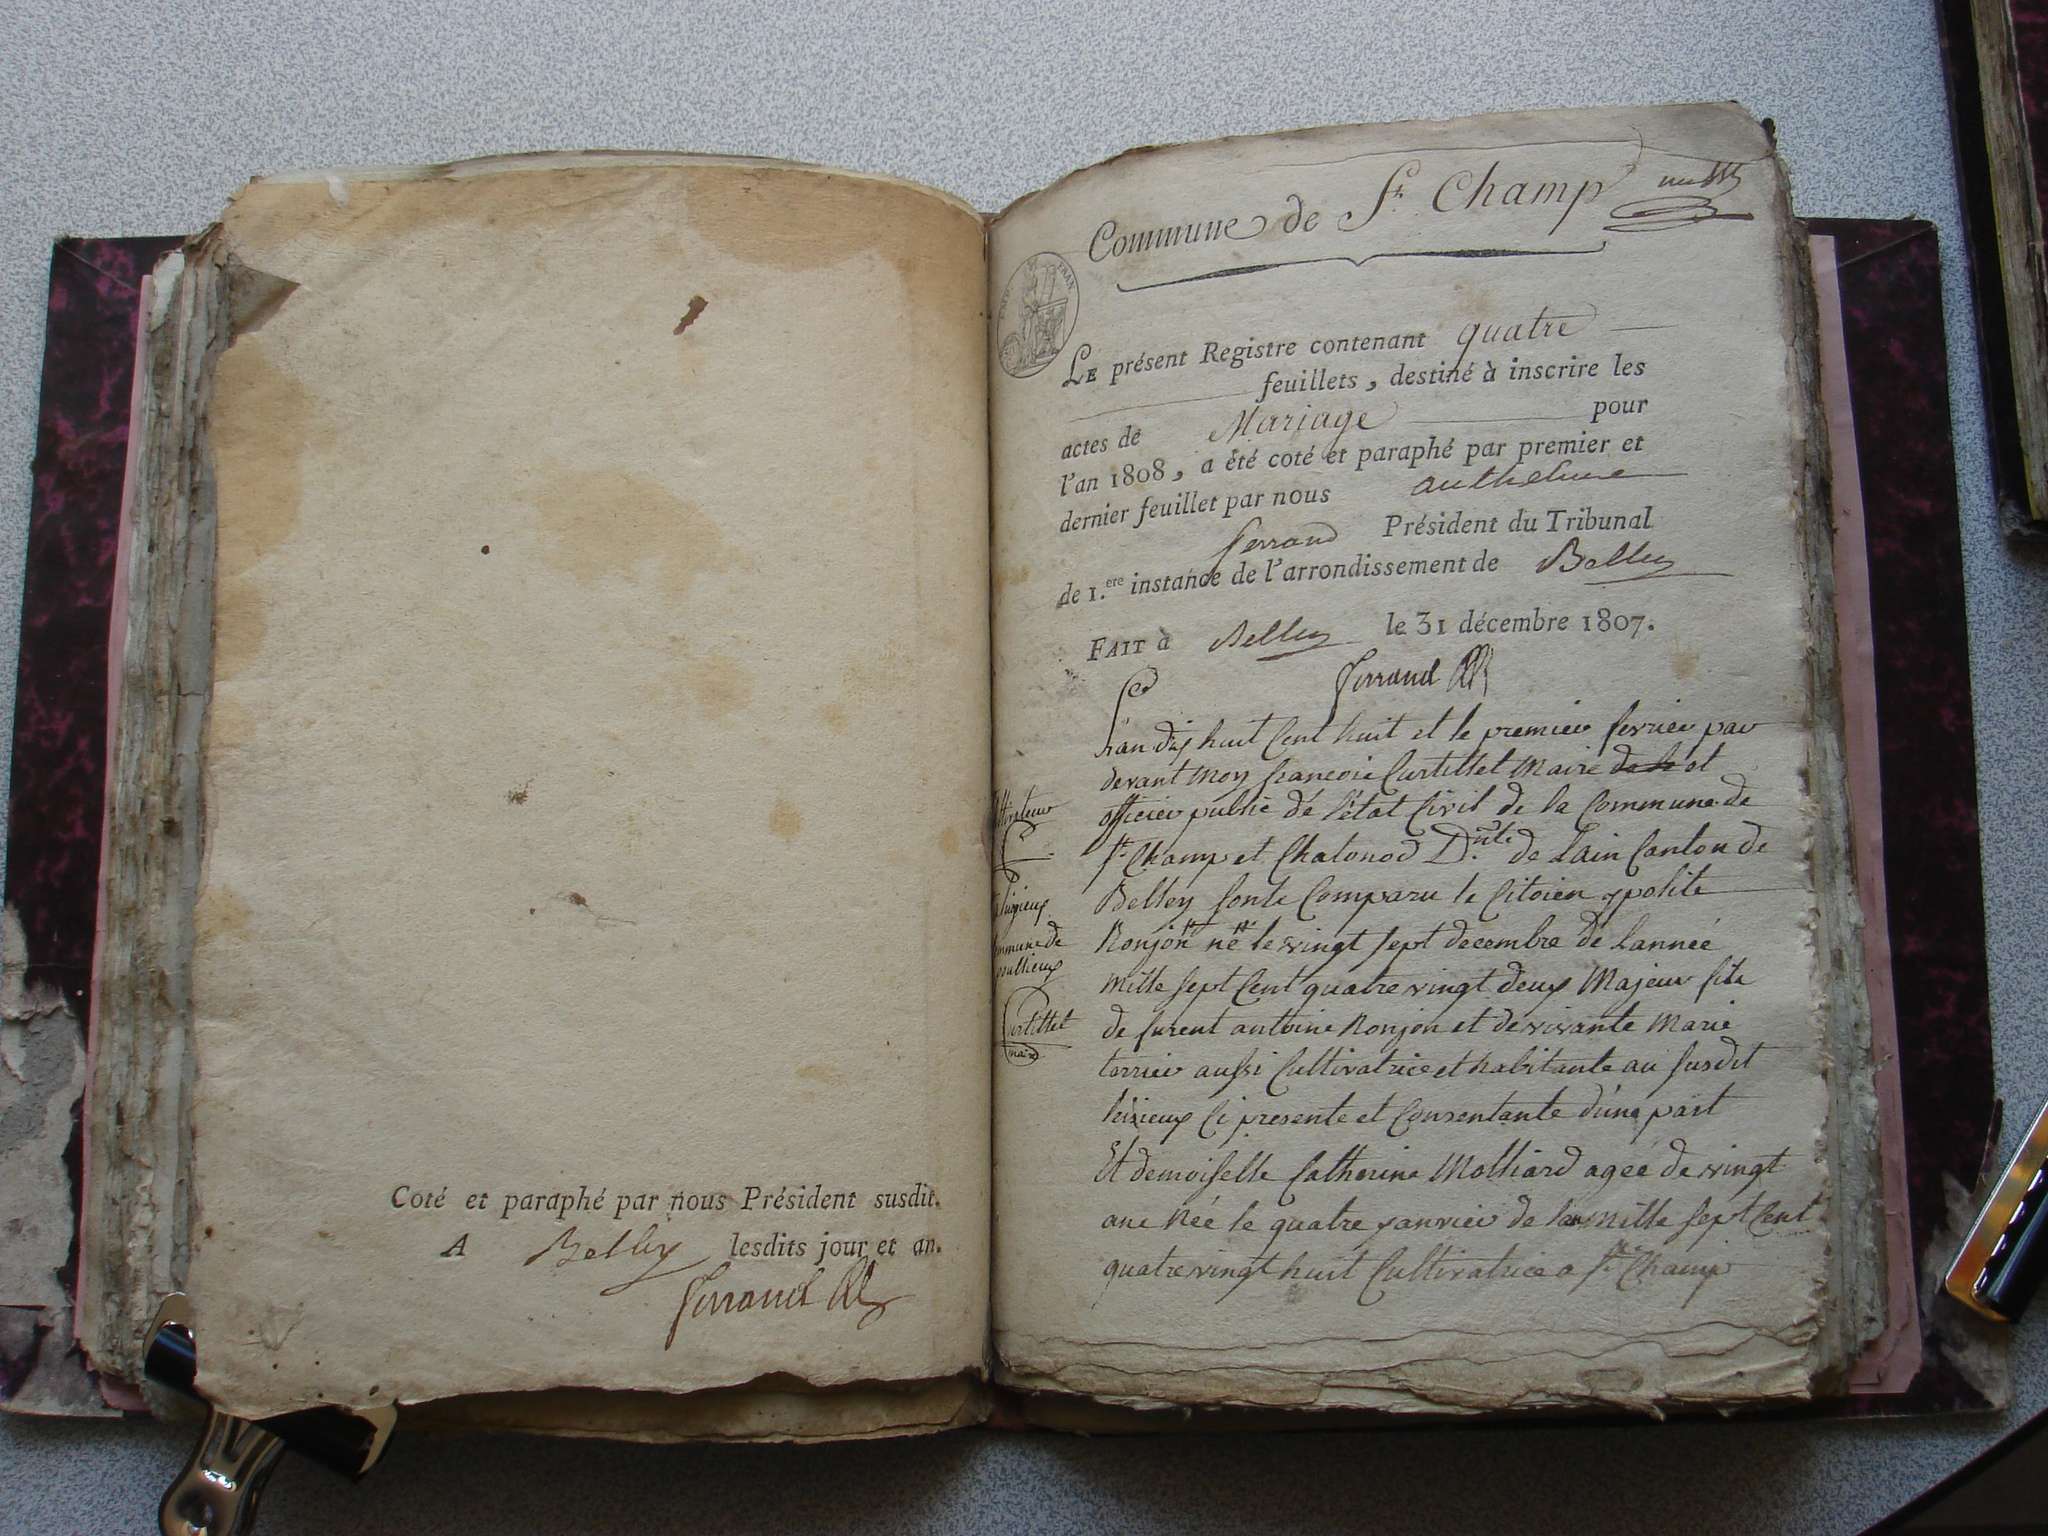 Coté et paraphé par nous Président susdit.
A Belley lesdits jour et an.
Ferrand
Commune de St Champ
Le présent Registre contenant quatre
feuillets, destiné à inscrire les
actes de Mariage pour
l'an 1808, a été coté et paraphé par premier et
dernier feuillet par nous anthelme
ferrand Président du Tribunal
de 1.ere instance de l'arrondissement de Belley
FAIT à Belley le 31 décembre 1807.
Ferrand
Lan dix huit Cent huit et le premier fevrier par
devant moy francois Curtillet Maire de la et
officier public dé l'état Civil de la Commune de
St Champ et Chatonod D.nte de Lain Canton de
Belley sont Comparu le Citoien ypolite
Ronjon né le vingt sept decembre dé lannée
mille sept Cent quatre vingt deux Majeur fils
de furent antoine Ronjon et de vivante Marie
terrier aussi Cultivatrice et habitante au susdit
Ci presente et Consentante d'une part
Et demoiselle Catherine Molliard agee de vingt
ane Née le quatre janvier de lan mille sept Cent
quatre vingt huit Cultivatrice a St Champ
Cultivateur
commune de
Curtillet
maire